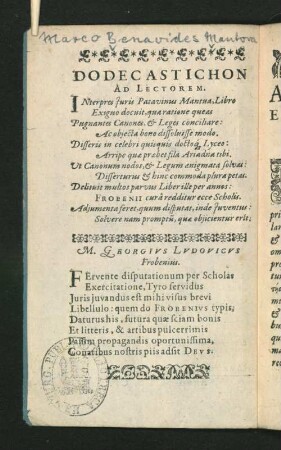 Marco Benavides Mantova
DODECASTICHON
AD LECTOREM.
INterpres Juris Patavinus Mantua, Libro
Exiguo docuit, qua ratione queas
Pugnantes Canones, & Leges conciliare:
Ac objecta bono dissoluisse modo.
Disseris in celebri quisquis doctoq; Lyceo:
Arripe quæ præbet fila Ariadnea tibi.
Ut Canonum nodos, & Legum ænigmata solvas:
Disserturus & hinc commoda plura petas.
Delituit multos parvus Liber ille per annos:
FROBENII curâ redditur ecce Scholis.
Adjumenta feret, quum disputat, inde Juventus:
Solvere nam promptū, quæ objicientur erit;
M. GEORGIVS LVDOVICVS
Frobenius.
FErvente disputationum per Scholas
Exercitatione, Tyro fervidus
Juris juvandus est mihi visus brevi
Libellulo: quem do FROBENIVS typis;
Daturus his, futura quæ sciam bonis
Et litteris, & artibus pulcerrimis
Passim propagandis oportunissima,
Conatibus nostris piis adsit DEVS.